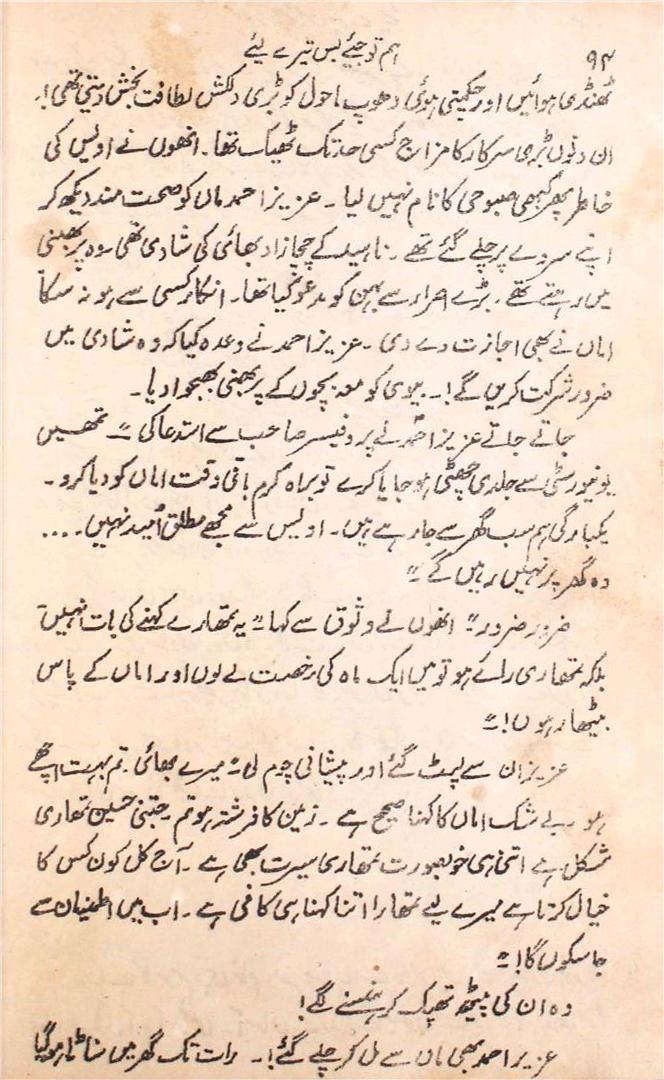 ۹۴ ہم تو جیئے بس تیرے لیے
ٹھنڈی ہوائیں اور چمکیتی ہوئی دھوپ ماحول کو بڑی دلکش لطافت بخش دیتی تھی!۔
ان دنوں بڑی سرکار کا مزاج کسی حد تک ٹھیک تھا۔ انھوں نے اویس کی
خاطر پھر کبھی صبوحی کا نام نہیں لیا۔ عزیز احمد ماں کو صحت مند دیکھ کر
اپنے سروے پر چلے گئے تھے۔ ناہید کے چچا زاد بھائی کی شادی تھی۔ وہ پربھینی
میں رہتے تھے۔ بڑے اصرار سے بہن کو مدعو کیا تھا۔ انکار کسی سے ہو نہ سکا
اماں نے بھی اجازت دے دی۔ عزیز احمد نے وعدہ کیا کہ وہ شادی میں
ضرور شرکت کریں گے!۔ بیوی کو معہ بچوں کے پربھنی بھجوا دیا۔
جاتے جاتے عزیز احمد نے پروفیسر صاحب سے استدعا کی "۔ تمھیں
یونیورسٹی سے جلدی چھٹی ہو جایا کرے تو براہ کرم باقی وقت اماں کو دیا کرو۔
یکبارگی ہم سب گھر سے جا رہے ہیں۔ اویس سے مجھے مطلق اُمید نہیں ....
وہ گھر پر نہیں رہیں گے"
ضرور ضرور" انھوں نے وثوق سے کہا "یہ تمھارے کہنے کی بات نہیں
بلکہ تمھاری رائے ہو تو میں ایک ماہ کی رخصت لے لوں اور اماں کے پاس
بیٹھا رہوں!"
عزیز ان سے لپٹ گئے اور پیشانی چوم لی "میرے بھائی۔ تم بہت اچھے
ہو۔ بے شک اماں کا کہنا صحیح ہے۔ زمین کا فرشتہ ہو تم۔ جتنی حسین تمھاری
شکل ہے اتنی ہی خوبصورت تمھاری سیرت بھی ہے۔ آج کل کون کس کا
خیال کرتا ہے میرے لیے تمھارا اتنا کہنا ہی کافی ہے۔ اب میں اطمینان سے
جا سکوں گا!"
وہ ان کی پیٹھ تھپک کر ہنسنے لگے!
عزیز احمد بھی ماں سے مل کر چلے گئے!۔ رات تک گھر میں سناٹا ہو گیا